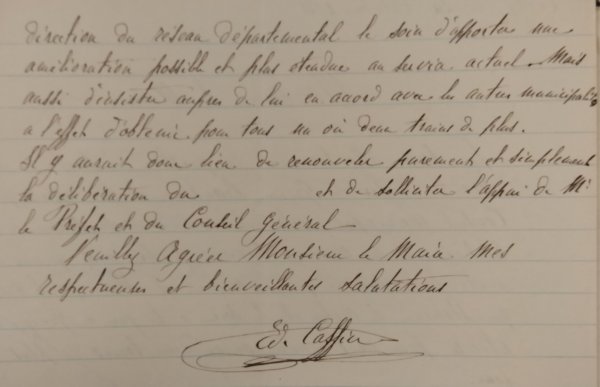 direction du réseau départemental le soin d'apporter une
amélioration possible et plus étendue au service actuel. Mais
aussi d'insister auprès de lui en accord avec les autres municipalités
a l'effet d'obtenir pour tous un où deux trains de plus.
Il y aurait donc lieu de renouveler purement et simplement
la délibération du et de solliciter l'appui de Mr
le Préfet et du Conseil Général
Veuillez Agréer Monsieur le Maire mes
respectueuses et bienveillantes salutations